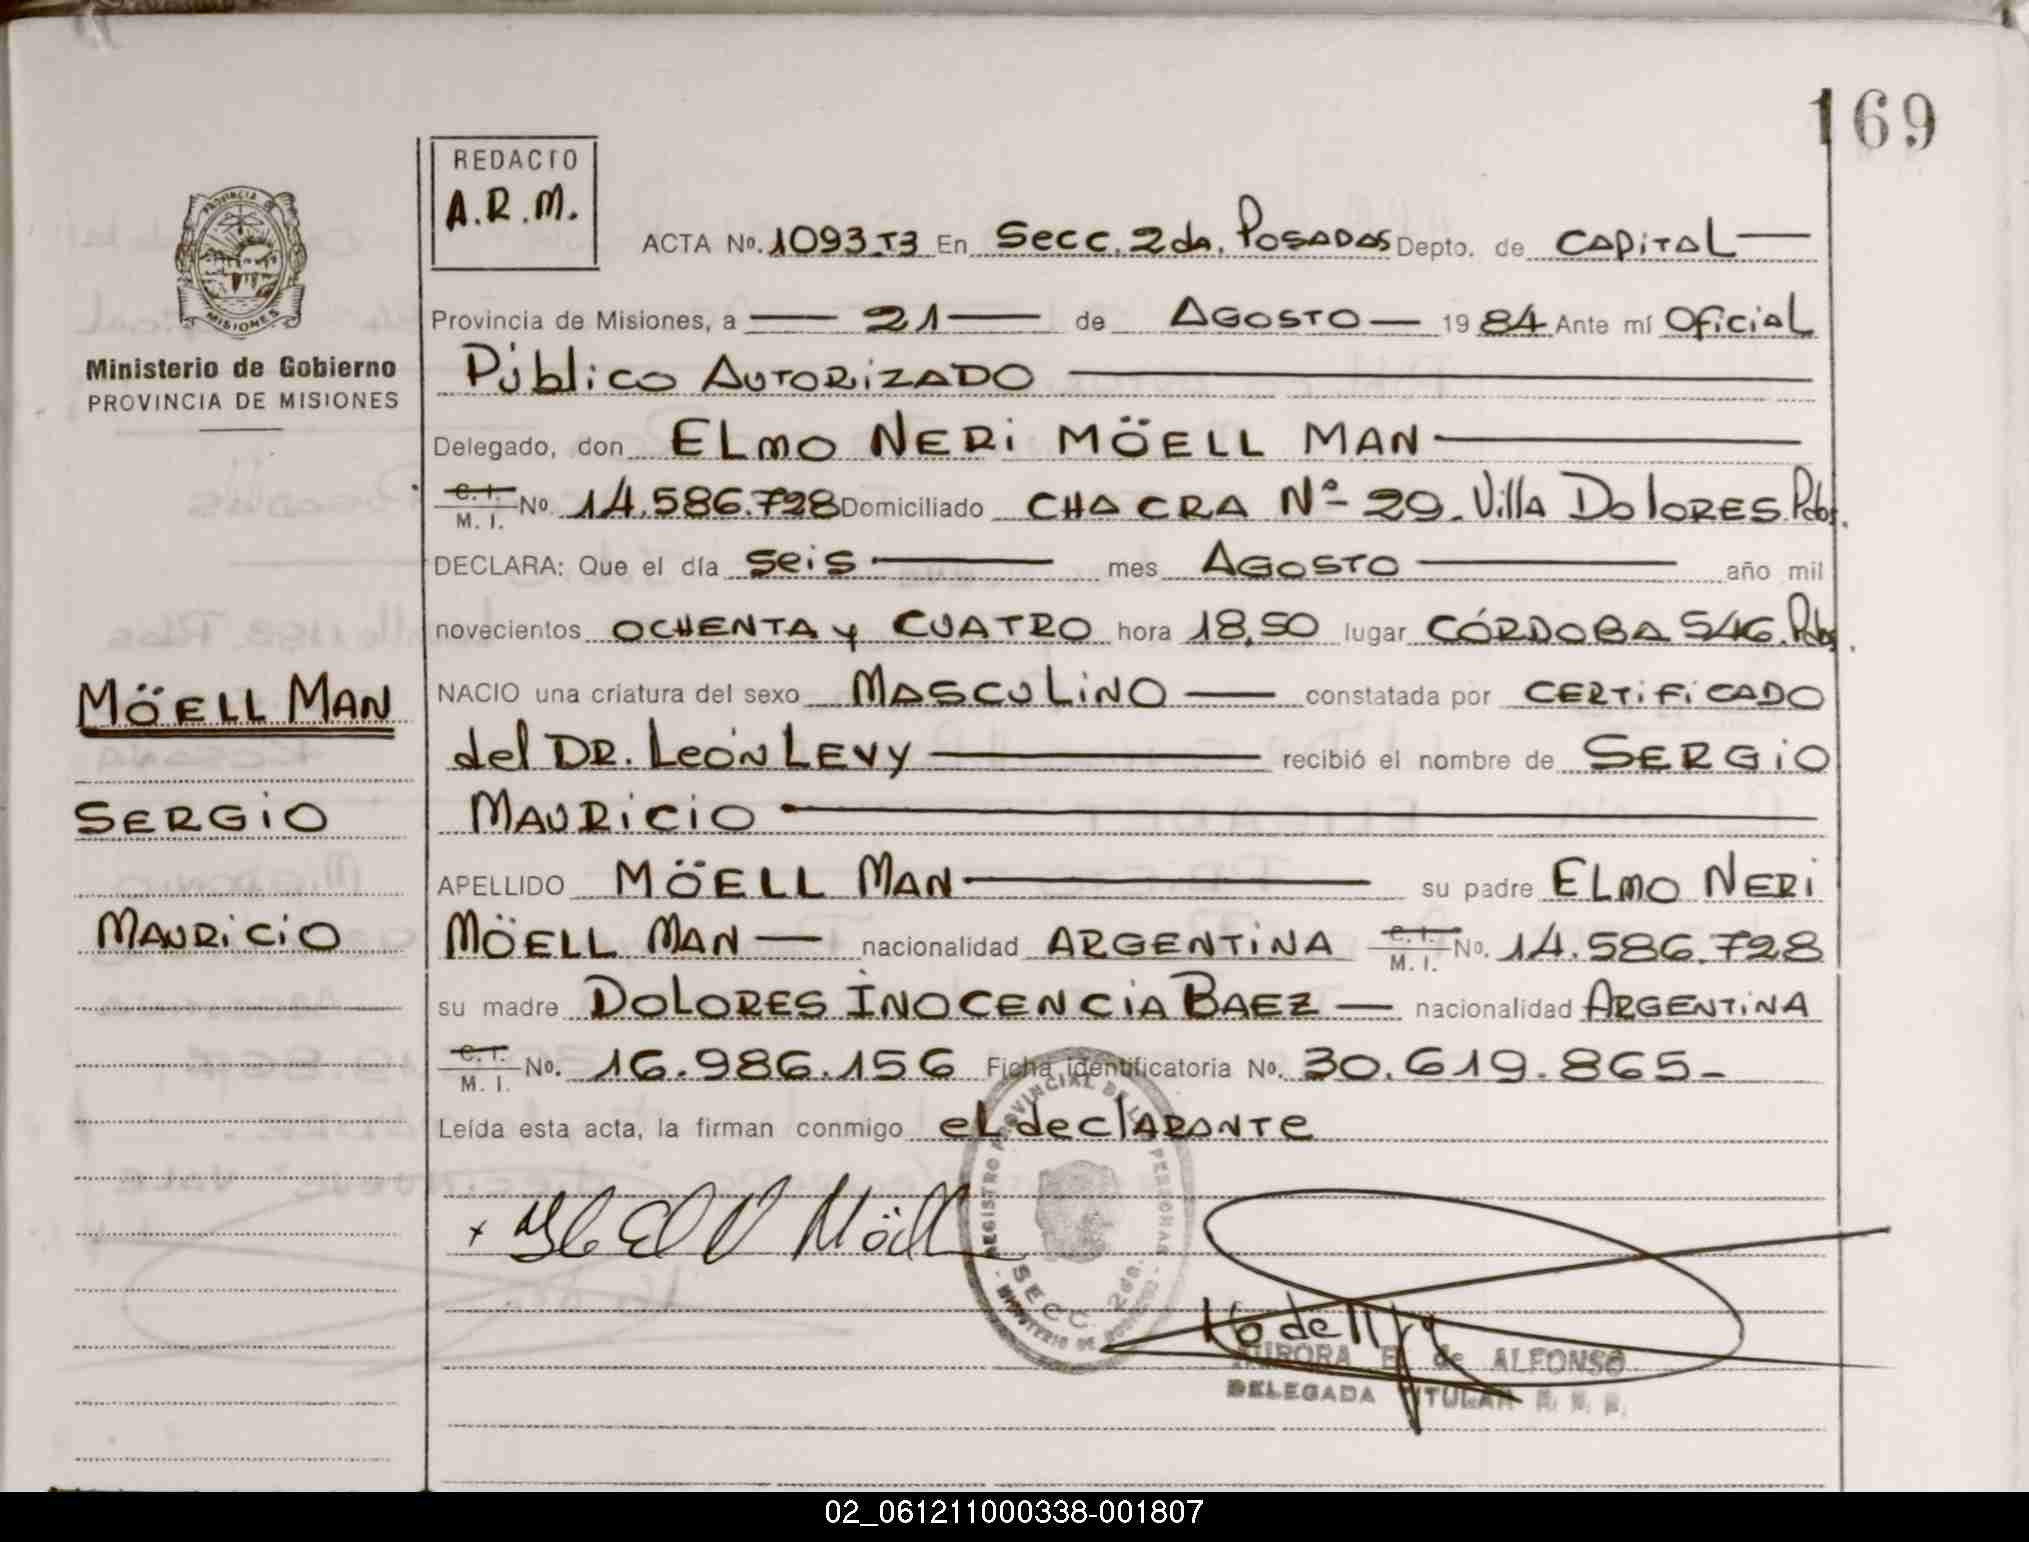 169
REDACTO
A.R.M.
ACTA No. 1093 T3 En Secc. 2da. POSADAS Depto. de CAPITAL
PROVINCIA DE
MISIONES
Ministerio de Gobierno
PROVINCIA DE MISIONES
Provincia de Misiones, a 21 de AGOSTO 19 84 Ante mí Oficial
Público AUTORIZADO
Delegado, don ELMO NERI MÖELL MAN
C. I. M. I. No. 14.586.728 Domiciliado CHACRA Nº 29. Villa DOLORES. Pdas.
DECLARA: Que el día seis mes AGOSTO año mil
novecientos OCHENTA y CUATRO hora 18,50 lugar CÓRDOBA 546. Pdas.
NACIO una criatura del sexo MASCULINO constatada por CERTIFICADO
del DR. LEÓN LEVY recibió el nombre de SERGIO
MAURICIO
APELLIDO MÖELL MAN su padre ELMO NERI
MÖELL MAN nacionalidad ARGENTINA C. I. M. I. No. 14.586.728
su madre DOLORES INOCENCIA BAEZ nacionalidad ARGENTINA
C. I. M. I. No. 16.986.156 Ficha identificatoria No. 30.619.865-
Leída esta acta, la firman conmigo el declARANTE
MÖELL MAN
SERGIO
MAURICIO
REGISTRO PROVINCIAL DE LAS PERSONAS
SECC. 2da.
MINISTERIO DE GOBIERNO
AURORA E. de ALFONSO
DELEGADA TITULAR
02_061211000338-001807